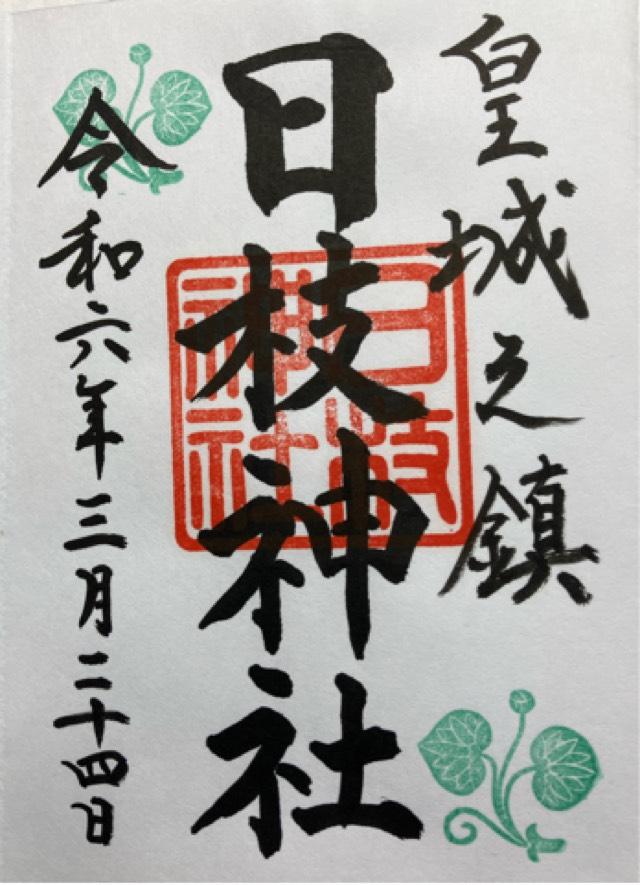 皇城之鎮
日枝神社
日枝神社
令和六年三月二十四日